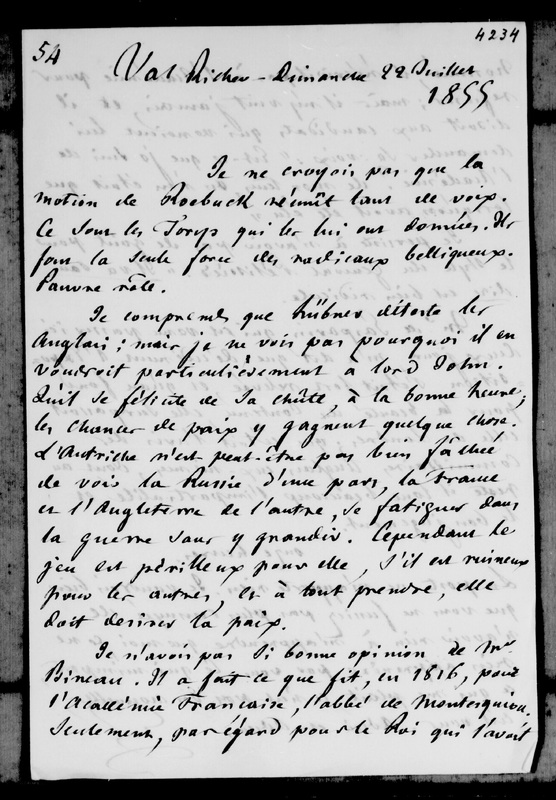 54
4234
Val Richer - Dimanche 22 Juillet
1855
Je ne croyois pas que la
motion de Roebuck réunît tant de voix.
Ce sont les Torys qui les lui ont données. Ils
font la seule force des radicaux belliqueux.
Pauvre rôle.
Je comprends que Hübner déteste les
Anglais ; mais je ne vois pas pourquoi il en
voudroit particulièrement à lord John.
Qu'il se félicite de sa chûte, à la bonne heure ;
les chances de paix y gagnent quelque chose.
L'Autriche n'est peut-être pas bien fâchée
de voir la Russie d'une part, la France
et l'Angleterre de l'autre, se fatiguer dans
la guerre sans y grandir. Cependant le
jeu est périlleux pour elle, s'il est ruineux
pour les autres, et à tout prendre, elle
doit desirer la paix.
Je n'avois pas si bonne opinion de Mr
Bineau. Il a fait ce que fit, en 1816, pour
l'Académie Française, l'abbé de Montesquiou.
Seulement, par égard pour le Roi qui l'avoit